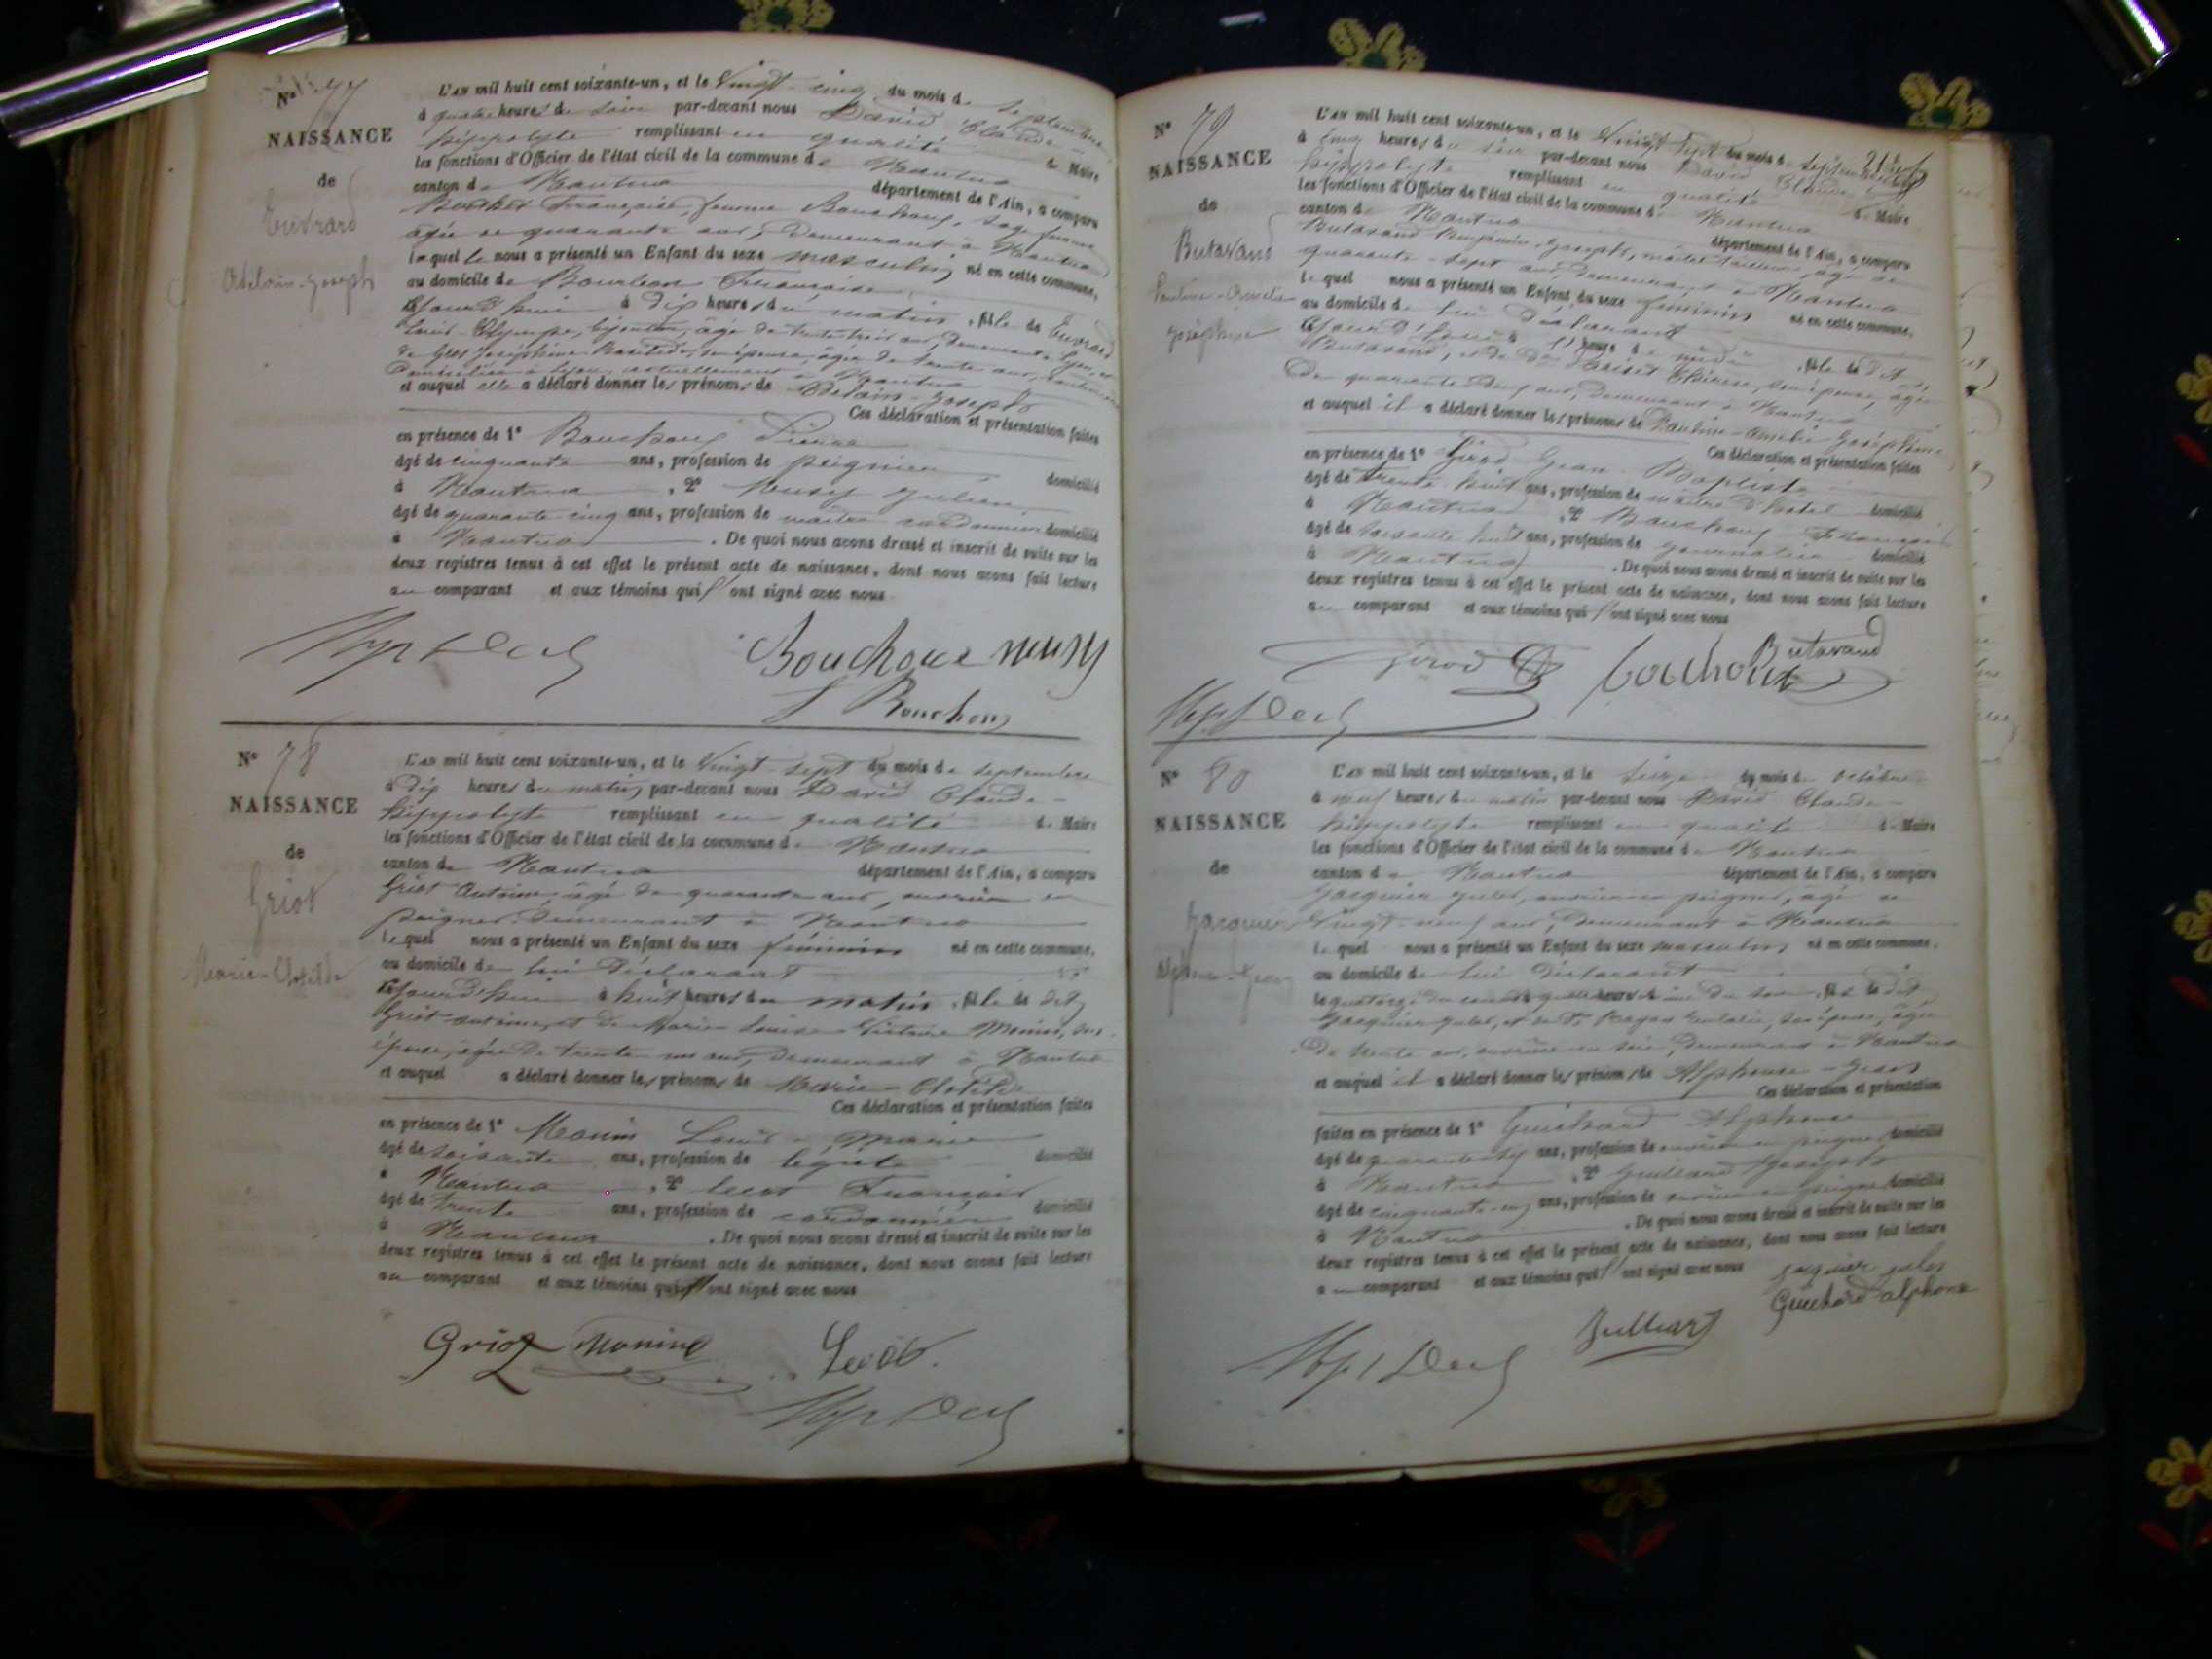 N° 77
NAISSANCE
de
Adelain-Joseph
L'AN mil huit cent soixante-un, et le Vingt-cinq du mois de septembre
à quatre heures du soir par-devant nous David Claude-
hippolyte remplissant en qualité de Maire
les fonctions d'Officier de l'état civil de la commune de Nantua
canton de Nantua département de l'Ain, a comparu
Françoise, femme Bouchoux, sage femme
agée de quarante ans, demeurant à Nantua
laquelle nous a présenté un Enfant du sexe masculin né en cette commune,
au domicile de Françoise
à dix heures du matin, fils de
Louis bijoutier, âgé de trente trois ans, demeurant à Lyon, et
de Joséphine son épouse, âgée de trente ans,
domiciliée à Lyon, actuellement à Nantua
et auquel elle a déclaré donner les prénoms de Adelain-Joseph
Ces déclaration et présentation faites
en présence de 1° Bouchoux
âgé de cinquante ans, profession de peignier domicilié
à Nantua, 2° Julien
âgé de quarante-cinq ans, profession de maître cordonnier domicilié
à Nantua. De quoi nous avons dressé et inscrit de suite sur les
deux registres tenus à cet effet le présent acte de naissance, dont nous avons fait lecture
au comparant et aux témoins qui l'ont signé avec nous
Bouchoux
Bouchoux
N° 78
NAISSANCE
de
Griot
Marie-Clotilde
L'AN mil huit cent soixante-un, et le Vingt-sept du mois de septembre
à dix heures du matin par-devant nous David Claude-
hippolyte remplissant en qualité de Maire
les fonctions d'Officier de l'état civil de la commune de Nantua
canton de Nantua département de l'Ain, a comparu
Griot Antoine, âgé de quarante ans, ouvrier en
peignes demeurant à Nantua
lequel nous a présenté un Enfant du sexe féminin né en cette commune,
au domicile de lui déclarant
à huit heures du matin, fille de dit
Griot Antoine, et de Marie Louise Victoire Monin, son
épouse, âgée de trente un ans, demeurant à Nantua
et auquel a déclaré donner les prénoms de Marie-Clotilde
Ces déclaration et présentation faites
en présence de 1° Monin Louis-Marie
âgé de soixante ans, profession de domicilié
à Nantua, 2° François
âgé de trente ans, profession de cordonnier domicilié
à Nantua. De quoi nous avons dressé et inscrit de suite sur les
deux registres tenus à cet effet le présent acte de naissance, dont nous avons fait lecture
au comparant et aux témoins qui l'ont signé avec nous
Griot Monin
N° 79
NAISSANCE
de
Butavand
Pauline-Amélie
Joséphine
L'AN mil huit cent soixante-un, et le Vingt Sept du mois de septembre
à cinq heures du soir par-devant nous David Claude
hippolyte remplissant en qualité de Maire
les fonctions d'Officier de l'état civil de la commune de Nantua
canton de Nantua département de l'Ain, a comparu
Butavand Benjamin Joseph, maître tailleur, âgé de
quarante-sept ans, demeurant à Nantua
lequel nous a présenté un Enfant du sexe féminin né en cette commune,
au domicile de lui déclarant
heure de midi, fille de dit
Butavand, et de Thérèse, son épouse, âgée
de quarante deux ans, demeurant à Nantua
et auquel il a déclaré donner les prénoms de Pauline-Amélie-Joséphine
Ces déclaration et présentation faites
en présence de 1° Girod Jean-Baptiste
âgé de trente huit ans, profession de maître d'hôtel domicilié
à Nantua, 2° Bouchoux François
âgé de soixante huit ans, profession de journalier domicilié
à Nantua. De quoi nous avons dressé et inscrit de suite sur les
deux registres tenus à cet effet le présent acte de naissance, dont nous avons fait lecture
au comparant et aux témoins qui l'ont signé avec nous
Butavand
Girod Bouchoux
N° 80
NAISSANCE
de
Jacquier
Alphonse-Jean
L'AN mil huit cent soixante-un, et le Seize du mois de octobre
à neuf heures du matin par-devant nous David Claude-
hippolyte remplissant en qualité de Maire
les fonctions d'Officier de l'état civil de la commune de Nantua
canton de Nantua département de l'Ain, a comparu
Jacquier Jules, ouvrier en peignes, âgé de
Vingt-neuf ans, demeurant à Nantua
lequel nous a présenté un Enfant du sexe masculin né en cette commune,
au domicile de lui déclarant
le quatorze du courant à heures du soir, fils de dit
Jacquier Jules, et de Eulalie, son épouse, âgée
de trente ans, ouvrière en soie, demeurant à Nantua
et auquel il a déclaré donner les prénoms de Alphonse-Jean
Ces déclaration et présentation
faites en présence de 1° Guichard Alphonse
âgé de ans, profession de ouvrier en peignes domicilié
à Nantua, 2° Joseph
âgé de ans, profession de ouvrier en peignes domicilié
à Nantua. De quoi nous avons dressé et inscrit de suite sur les
deux registres tenus à cet effet le présent acte de naissance, dont nous avons fait lecture
au comparant et aux témoins qui l'ont signé avec nous
Jacquier Jules
Guichard alphonse